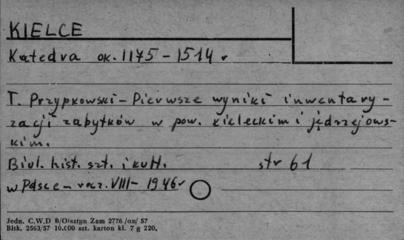 KIELCE
Katedra ok. 1175 - 1514 r
T. Przypkowski - Pierwsze wyniki inwentary-
zacji zabytków w pow. kieleckim i jędrzejows-
kim.
Biul. hist. szt. i kult. str 61
w Polsce - rocz. VIII - 1946r
Jedn. C.W.D B/Olsztyn Zam 2776 /on/ 57
Bisk. 2563/57 10.000 szt. karton kl. 7 g 220.